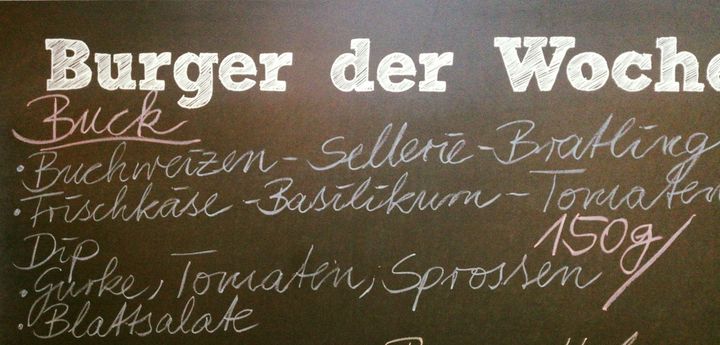 Burger der Woche
Buck
• Buchweizen - Sellerie - Bratling
• Frischkäse - Basilikum - Tomaten
Dip
150g/
• Gurke, Tomaten, Sprossen
• Blattsalate